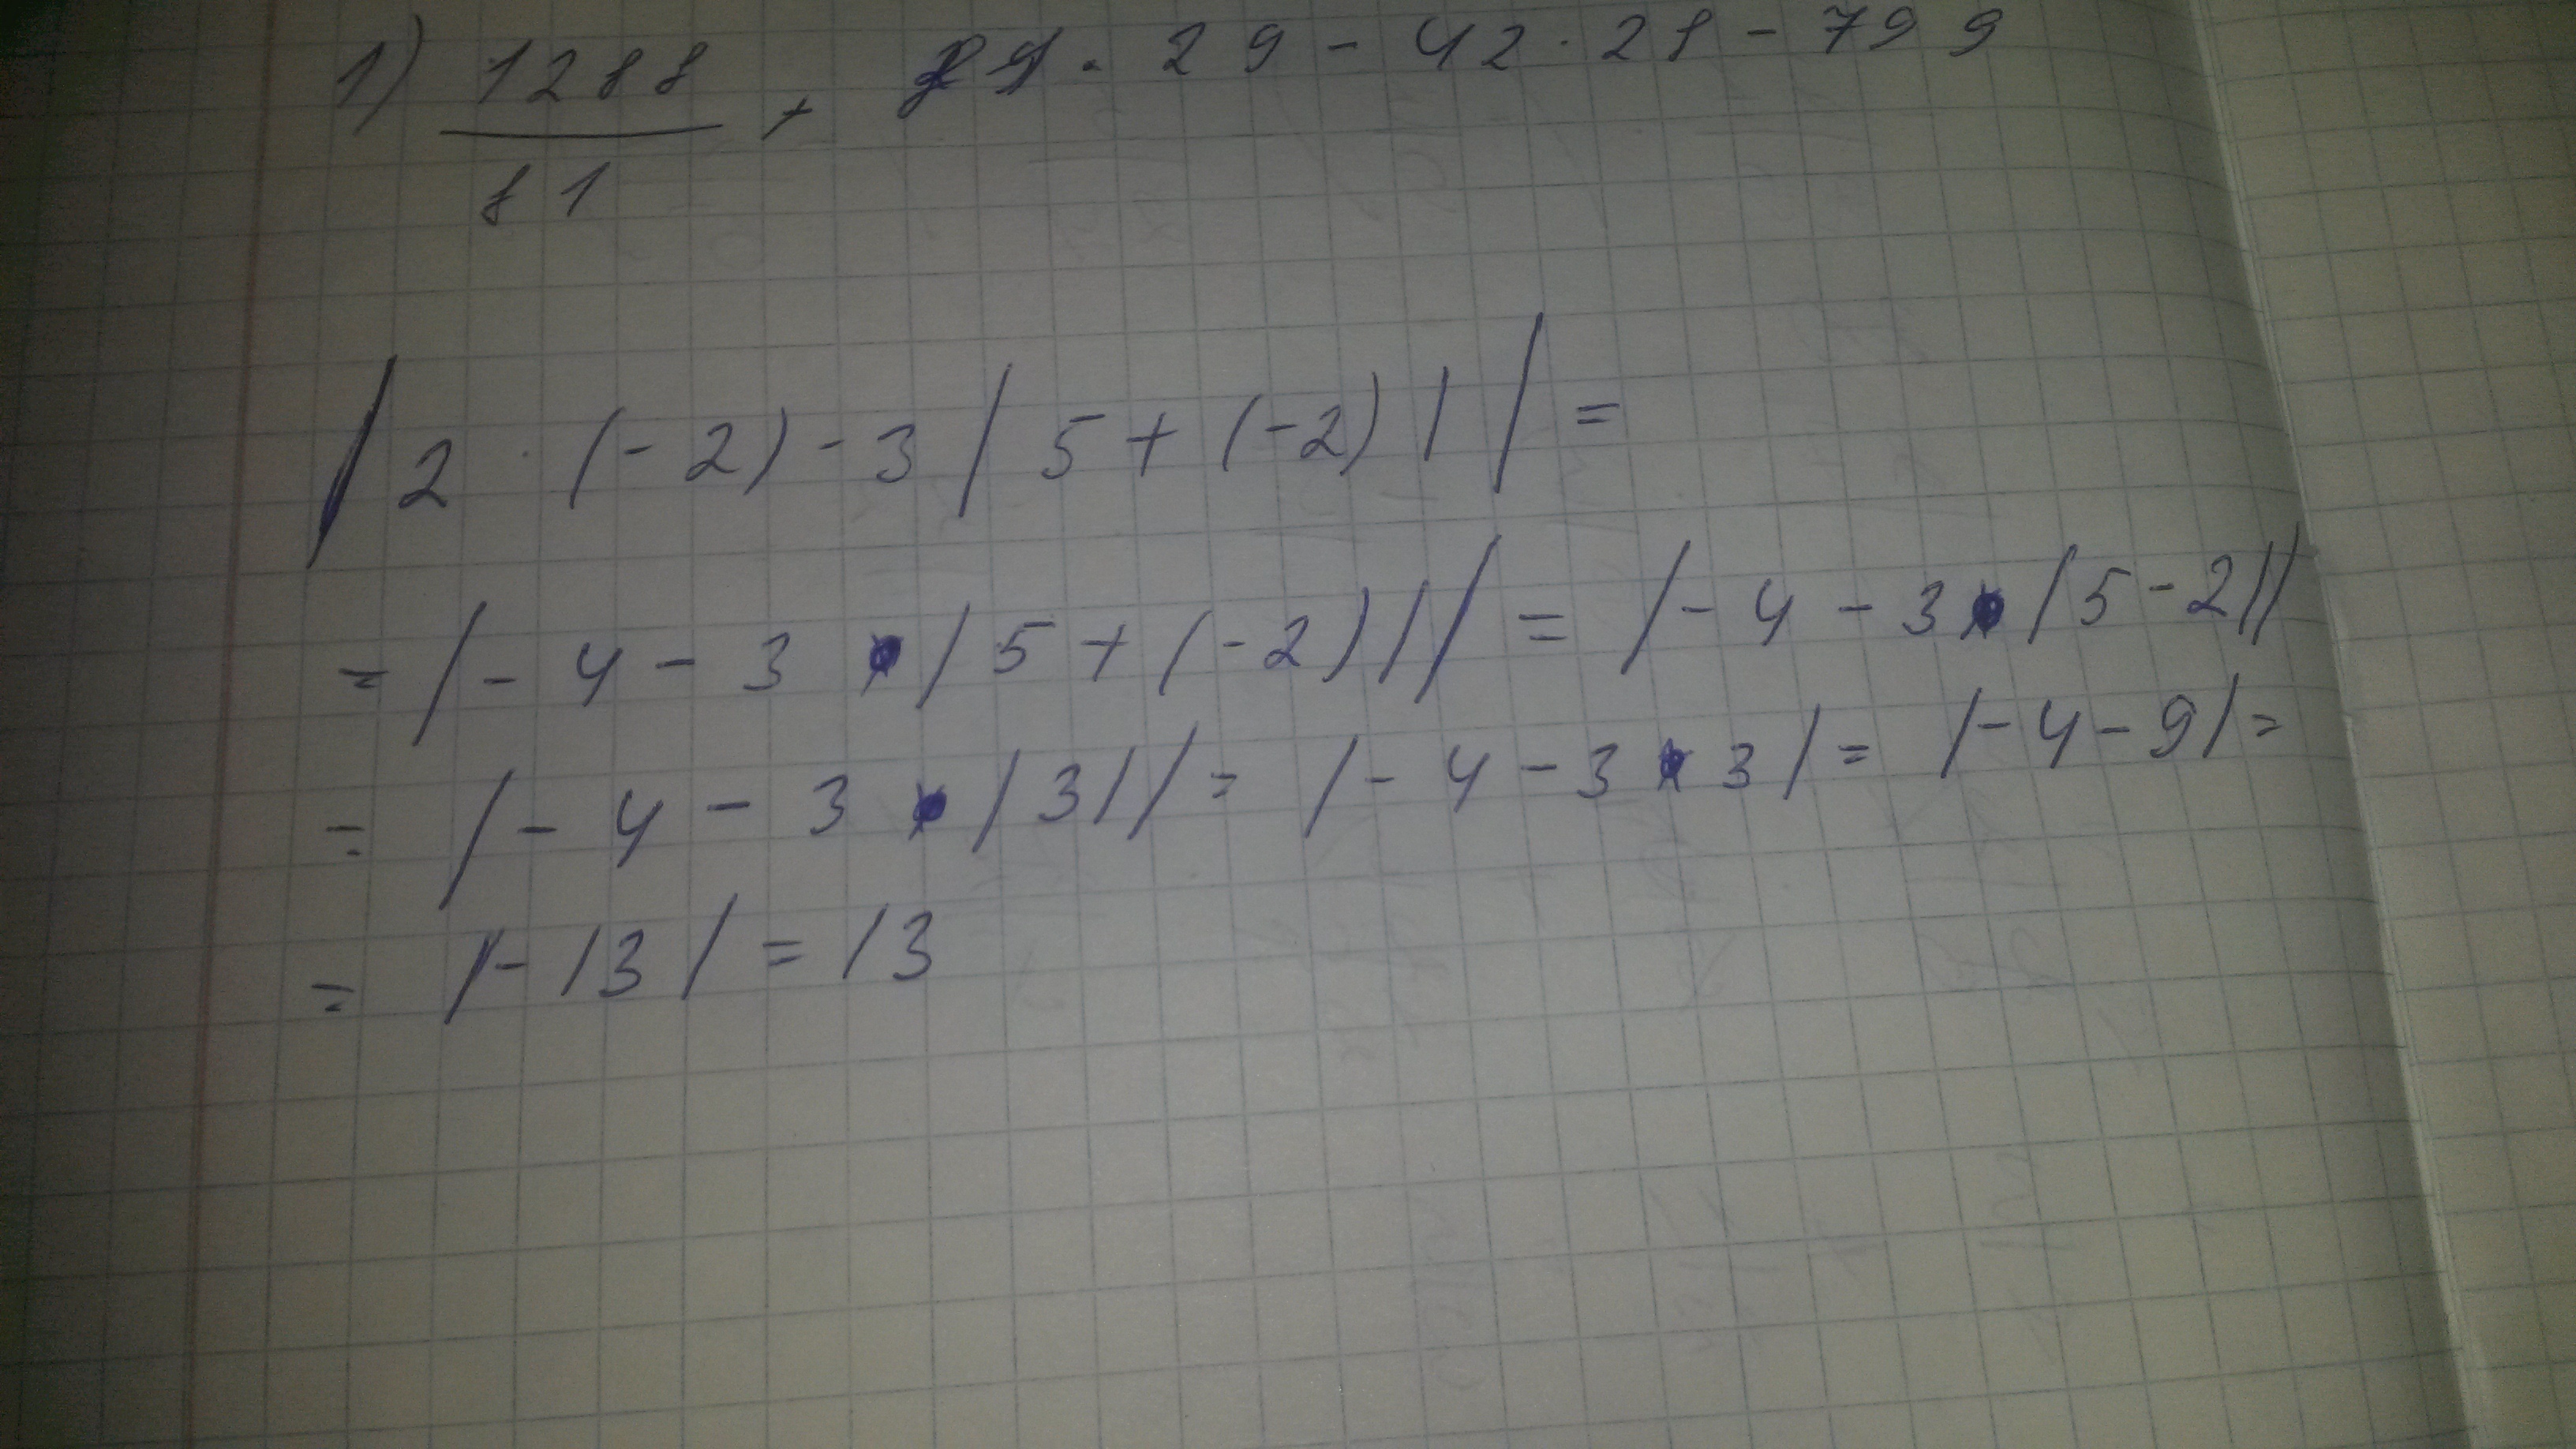 1) 1288 + . 29 - 42 . 28 - 799
81
| 2 · (- 2) - 3 | 5 + (-2) | | =
= | - 4 - 3 • | 5 + (-2) | | = | - 4 - 3 • | 5 - 2 | |
= | - 4 - 3 • | 3 | | = | - 4 - 3 • 3 | = | - 4 - 9 | =
= | - 13 | = 13